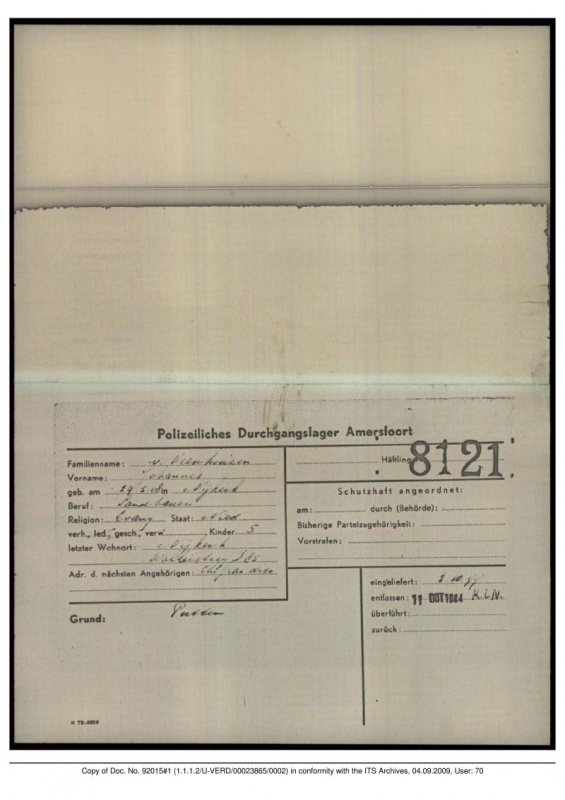 Polizeiliches Durchgangslager Amersfoort
Familienname: v.
Vorname: Johannes
geb. am 29.5. in Nijkerk
Beruf: Landbauer
Religion: Evang Staat: Nied
verh., led., gesch., verw. Kinder 5
letzter Wohnort: Nijkerk
Adr. d. nächsten Angehörigen:
Grund: Putten
Häftling 8121
Schutzhaft angeordnet:
am: durch (Behörde):
Bisherige Parteizugehörigkeit:
Vorstrafen:
eingeliefert: 2.10.44
entlassen: 11 OCT 1944 K.L.N.
überführt:
zurück:
K 73-5629
Copy of Doc. No. 92015#1 (1.1.1.2/U-VERD/00023865/0002) in conformity with the ITS Archives, 04.09.2009, User: 70